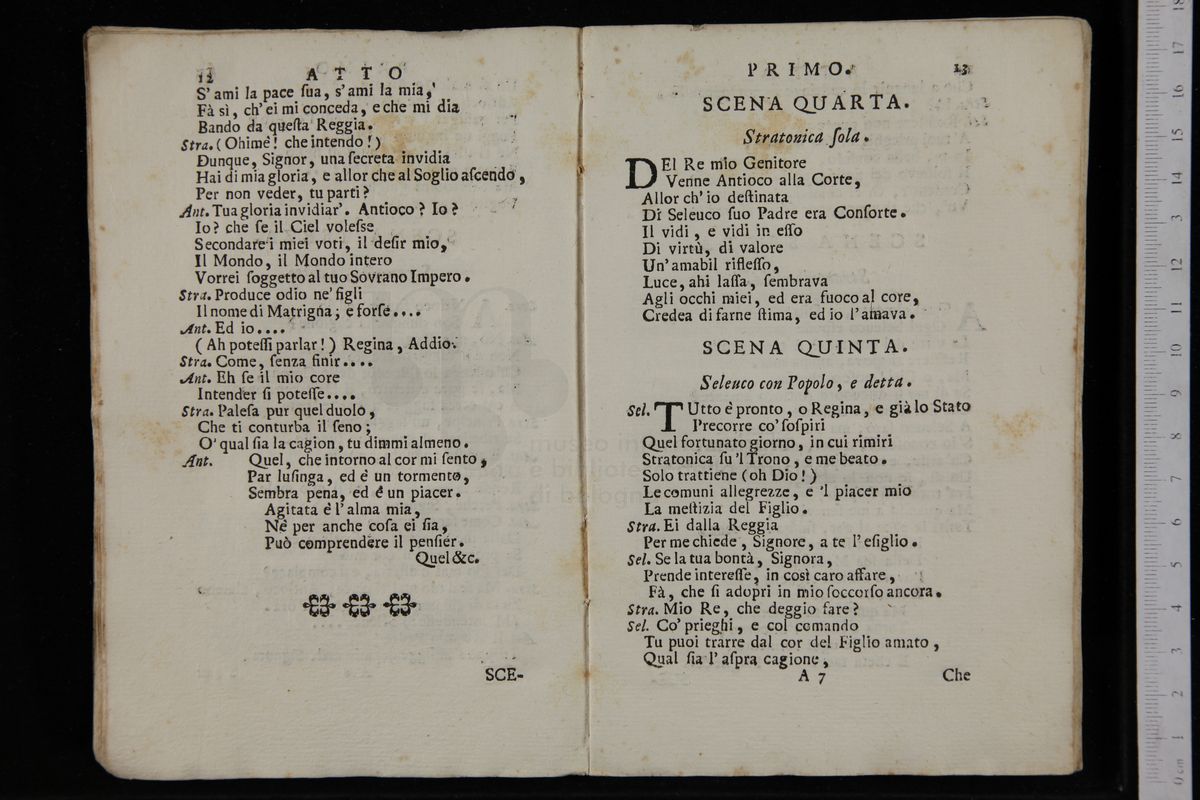 12 ATTO
S' ami la pace ſua, s'ami la mia,
Fà sì, ch'ei mi conceda, e che mi dia
Bando da queſta Reggia.
Stra. (Ohimè! che intendo!)
Dunque, Signor, una ſecreta invidia
Hai di mia gloria, e allor che al Soglio aſcendo,
Per non veder, tu parti?
Ant. Tua gloria invidiar'. Antioco? Io?
Io? che ſe il Ciel voleſse
Secondare i miei voti, il deſir mio,
Il Mondo, il Mondo intero
Vorrei ſoggetto al tuo Sovrano Impero.
Stra. Produce odio ne' figli
Il nome di Matrigna; e forſe....
Ant. Ed io....
(Ah poteſſi parlar!) Regina, Addio.
Stra. Come, ſenza finir....
Ant. Eh ſe il mio core
Intender ſi poteſſe....
Stra. Paleſa pur quel duolo,
Che ti conturba il ſeno;
O' qual ſia la cagion, tu dimmi almeno.
Ant. Quel, che intorno al cor mi ſento,
Par luſinga, ed è un tormento,
Sembra pena, ed è un piacer.
Agitata è l'alma mia,
Nè per anche coſa ei ſia,
Può comprendere il penſier.
Quel &c.
SCE-
PRIMO. 13
SCENA QUARTA.
Stratonica ſola.
DEl Re mio Genitore
Venne Antioco alla Corte,
Allor ch' io deſtinata
Di Seleuco ſuo Padre era Conſorte.
Il vidi, e vidi in eſſo
Di virtù, di valore
Un' amabil rifleſſo,
Luce, ahi laſſa, ſembrava
Agli occhi miei, ed era fuoco al core,
Credea di farne ſtima, ed io l'amava.
SCENA QUINTA.
Seleuco con Popolo, e detta.
Sel. TUtto è pronto, o Regina, e già lo Stato
Precorre co' ſoſpiri
Quel fortunato giorno, in cui rimiri
Stratonica ſu 'l Trono, e me beato.
Solo trattiene (oh Dio!)
Le comuni allegrezze, e 'l piacer mio
La meſtizia del Figlio.
Stra. Ei dalla Reggia
Per me chiede, Signore, a te l' eſiglio.
Sel. Se la tua bontà, Signora,
Prende intereſſe, in così caro affare,
Fà, che ſi adopri in mio ſoccorſo ancora.
Stra. Mio Re, che deggio fare?
Sel. Co' prieghi, e col comando
Tu puoi trarre dal cor del Figlio amato,
Qual ſia l' aſpra cagione,
A 7 Che